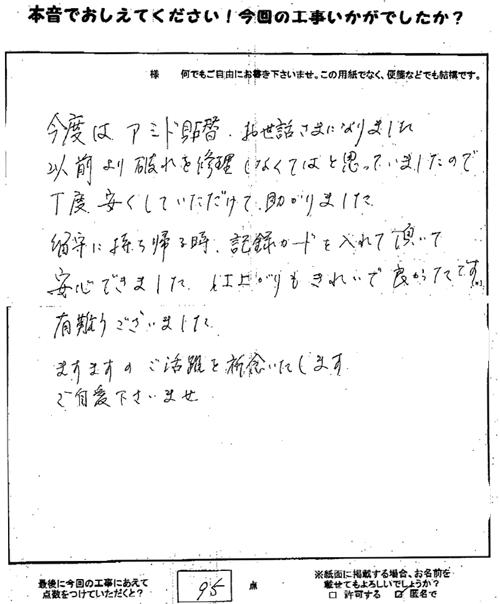 本音でおしえてください!今回の工事いかがでしたか?
様 何でもご自由にお書き下さいませ。この用紙でなく、便箋などでも結構です。
今度は アミド貼替、お世話さまになりました
以前より破れを修理しなくてはと思っていましたので
丁度 安くしていただけて、助かりました
留守に持ち帰る時、記録カードを入れて頂いて
安心できました 仕上がりもきれいで良かったです。
有難うございました
ますますのご活躍を祈念いたします
ご自愛下さいませ
最後に今回の工事にあえて
点数をつけていただくと?
95 点
※紙面に掲載する場合、お名前を
載せてもよろしいでしょうか?
□ 許可する ☑ 匿名で